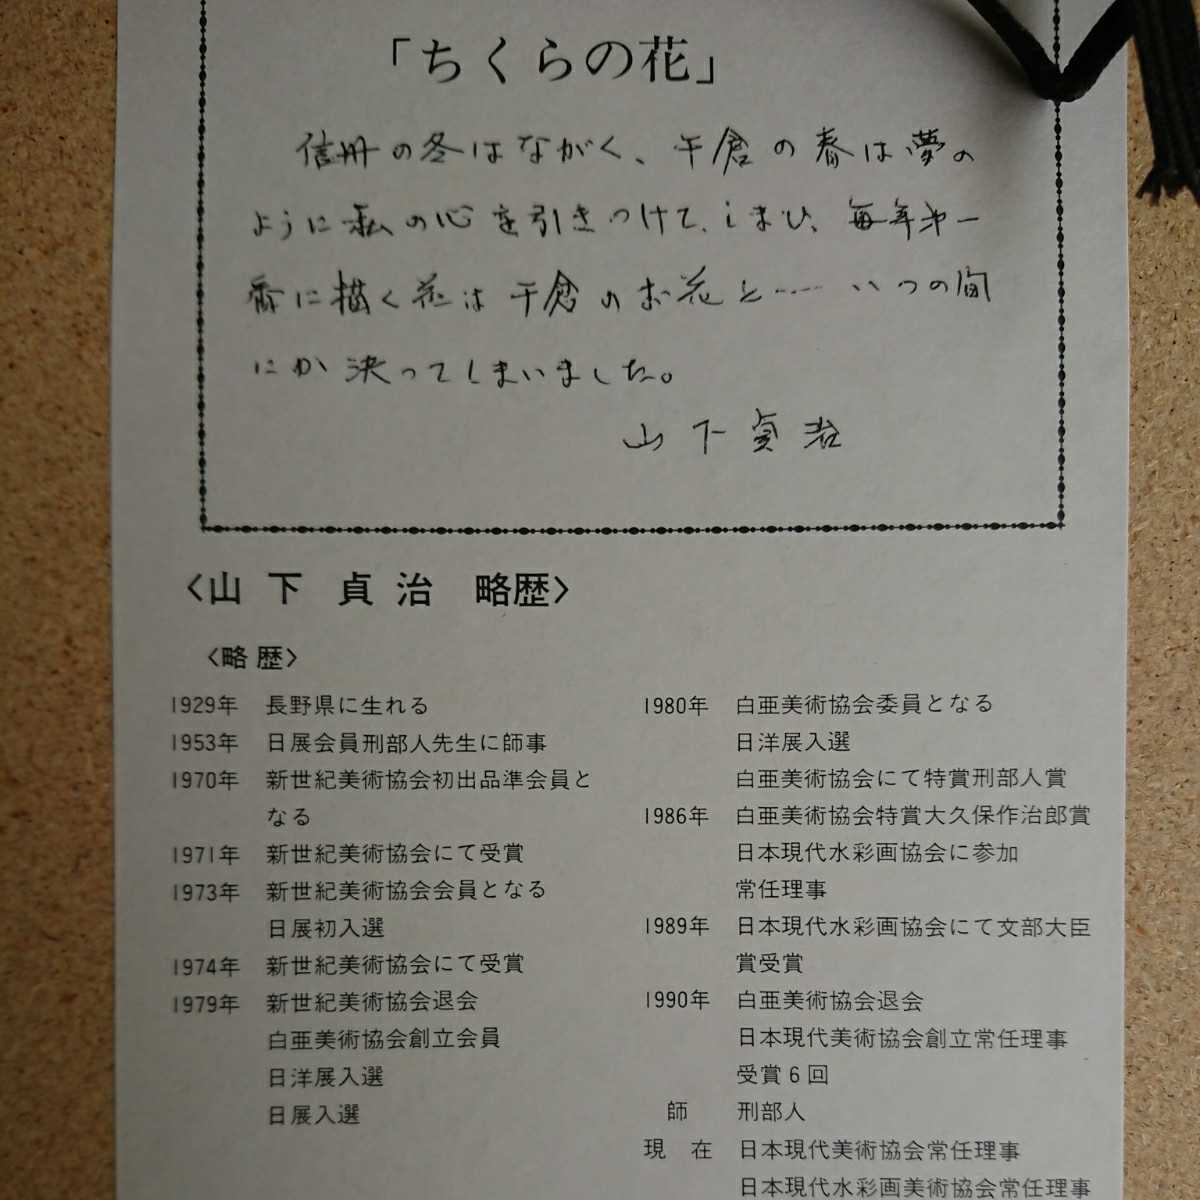 「ちくらの花」
信州の冬はながく、千倉の春は夢の
ように私の心を引きつけてしまい、毎年第一
番に描く花は千倉のお花と……いつの間
にか決ってしまいました。
山下貞治
〈山下 貞治 略歴〉
〈略歴〉
1929年 長野県に生れる
1953年 日展会員刑部人先生に師事
1970年 新世紀美術協会初出品準会員と
なる
1971年 新世紀美術協会にて受賞
1973年 新世紀美術協会会員となる
日展初入選
1974年 新世紀美術協会にて受賞
1979年 新世紀美術協会退会
白亜美術協会創立会員
日洋展入選
日展入選
1980年 白亜美術協会委員となる
日洋展入選
白亜美術協会にて特賞刑部人賞
1986年 白亜美術協会特賞大久保作治郎賞
日本現代水彩画協会に参加
常任理事
1989年 日本現代水彩画協会にて文部大臣
賞受賞
1990年 白亜美術協会退会
日本現代美術協会創立常任理事
受賞6回
師 刑部人
現在 日本現代美術協会常任理事
日本現代水彩画美術協会常任理事